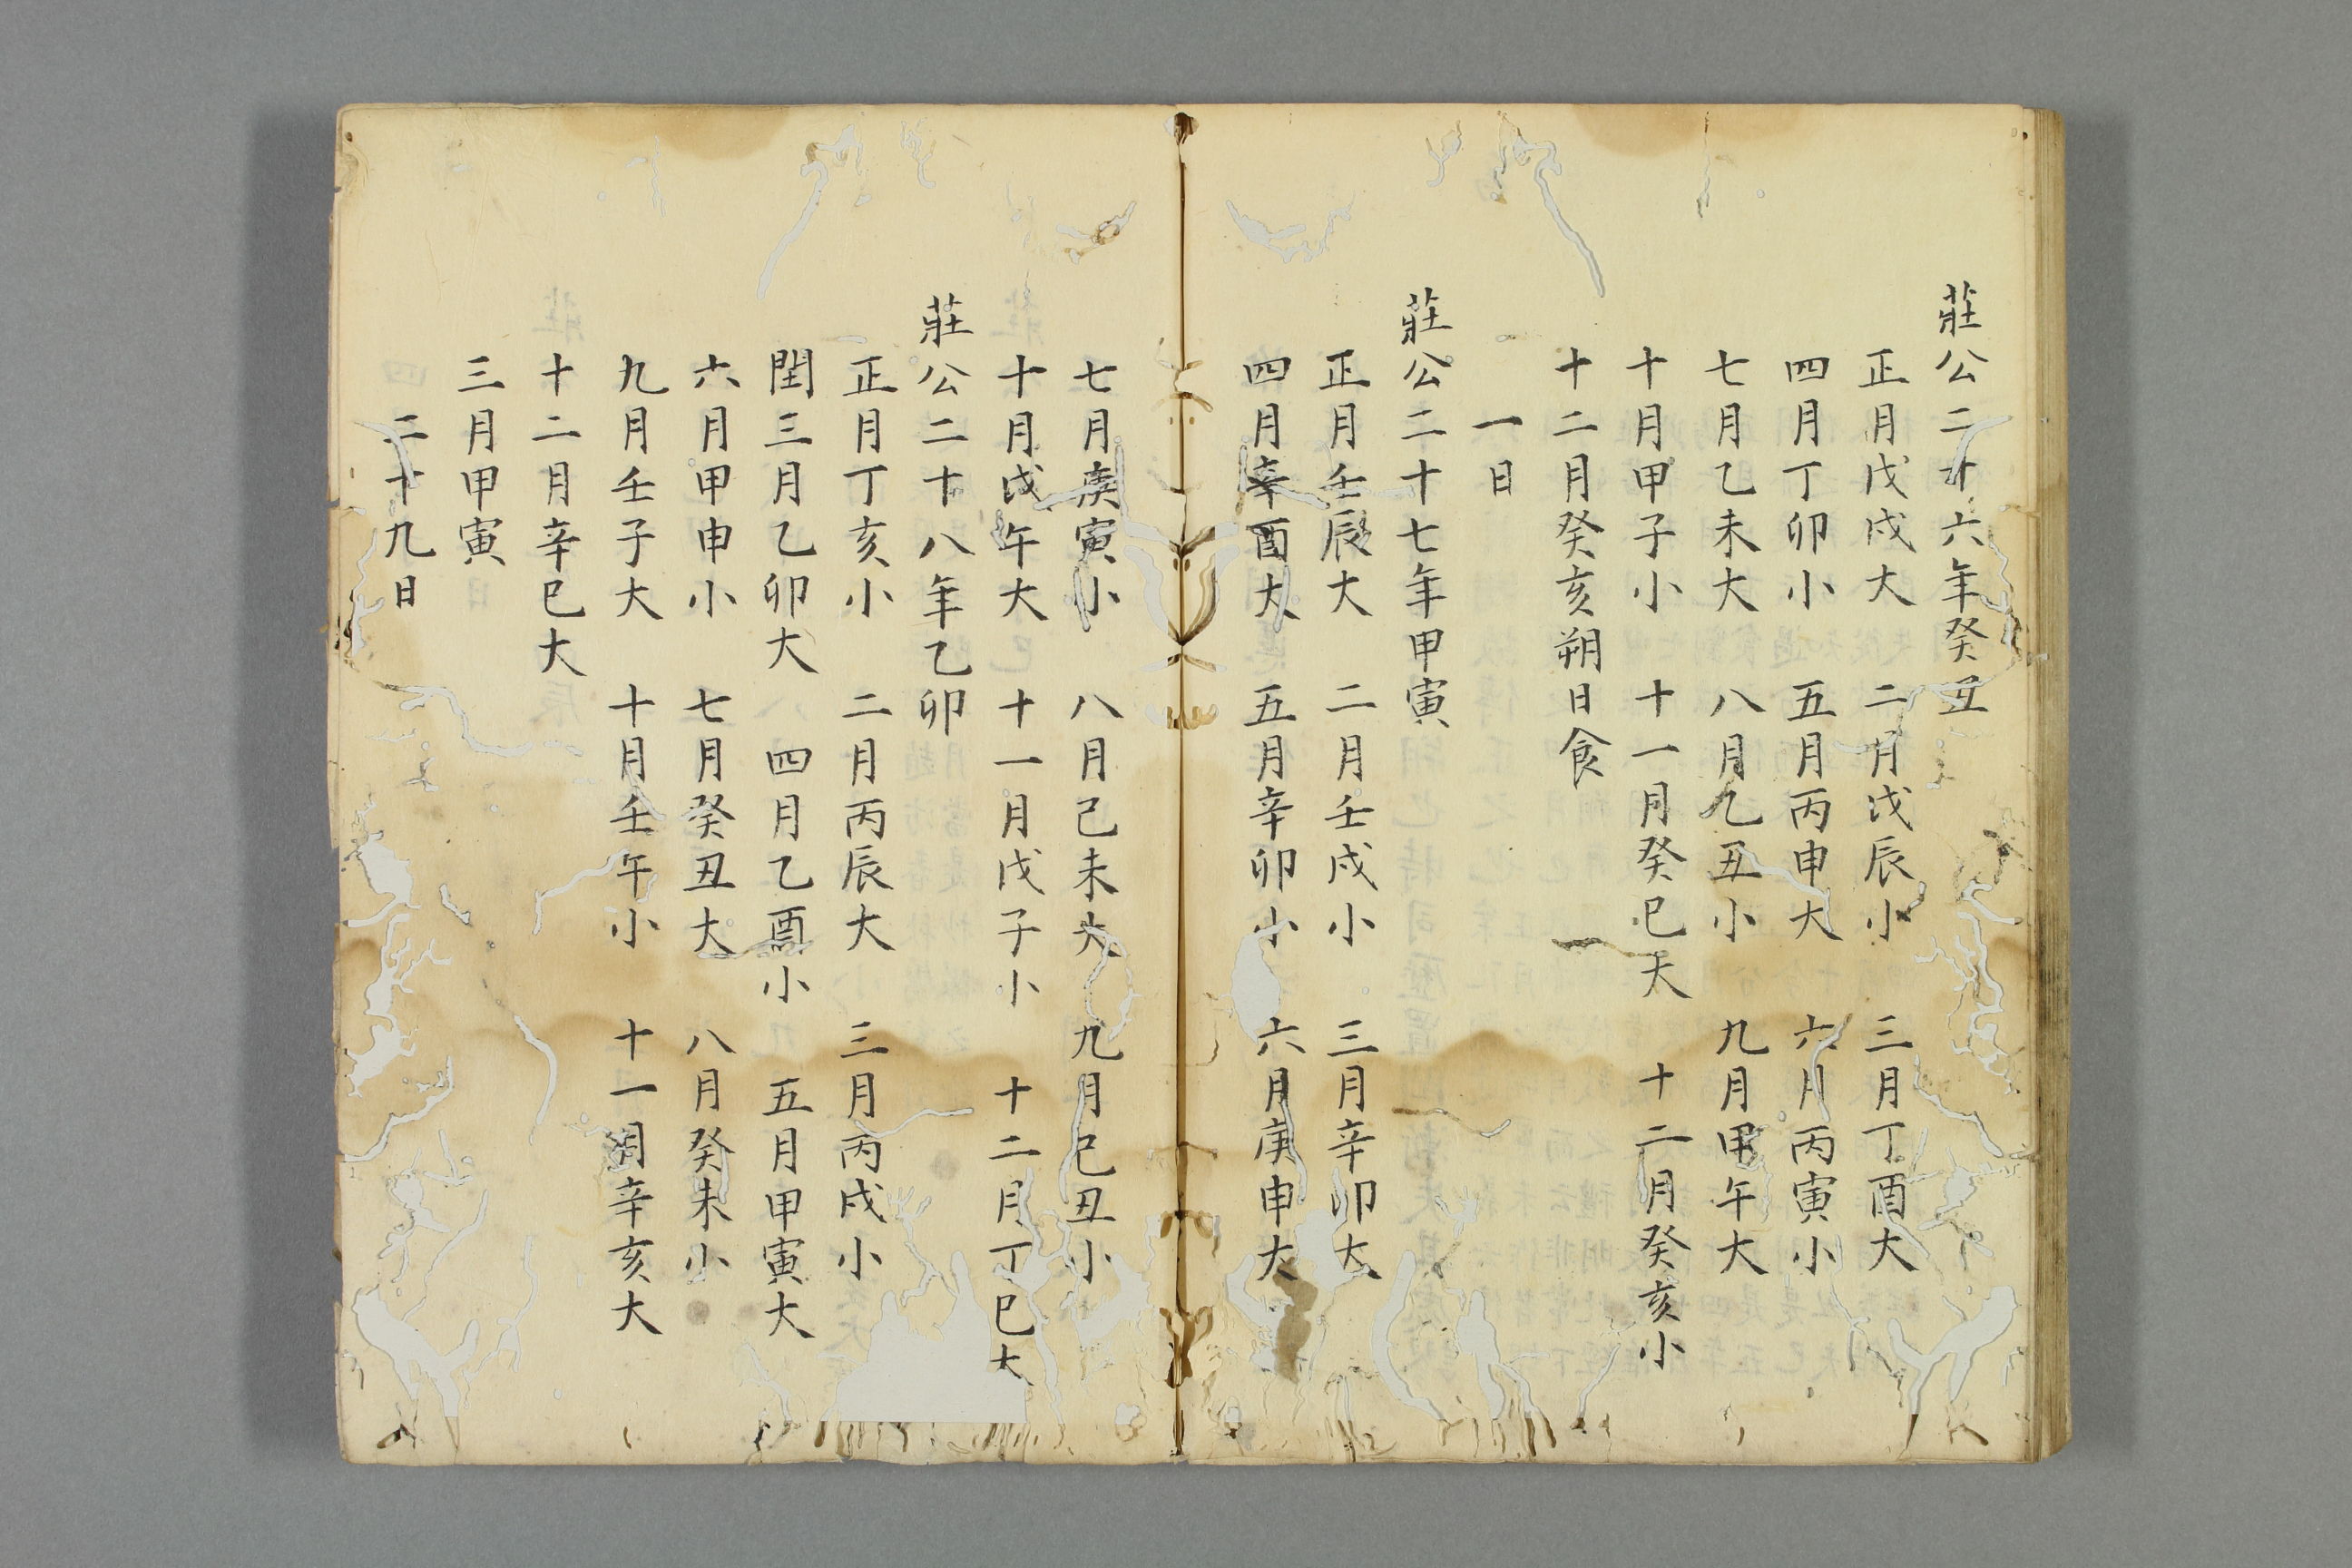 莊公二十六年癸丑
正月戊戌大 二月戊辰小 三月丁酉大
四月丁卯小 五月丙申大 六月丙寅小
七月乙未大 八月乙丑小 九月甲午大
十月甲子小 十一月癸巳大 十二月癸亥小
十二月癸亥朔日食
一日
莊公二十七年甲寅
正月壬辰大 二月壬戌小 三月辛卯大
四月辛酉大 五月辛卯小 六月庚申大
七月庚寅小 八月己未大 九月己丑小
十月戊午大 十一月戊子小 十二月丁巳大
莊公二十八年乙卯
正月丁亥小 二月丙辰大 三月丙戌小
閏三月乙卯大 四月乙酉小 五月甲寅大
六月甲申小 七月癸丑大 八月癸未小
九月壬子大 十月壬午小 十一月辛亥大
十二月辛巳大
三月甲寅
二十九日